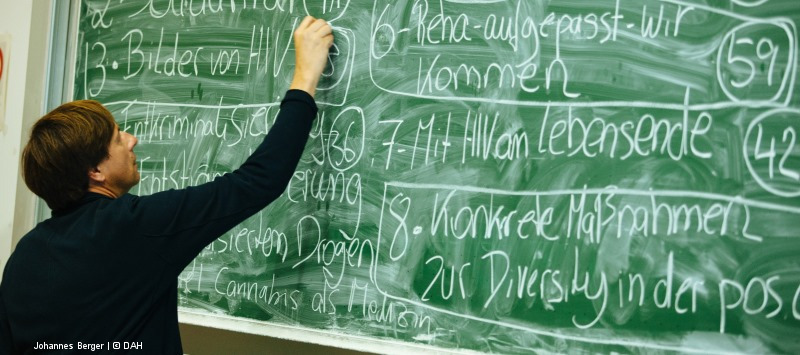 3. Bilder von HIV
Entkriminalisierung 36
isierten Drogen
Cannabis als Medizin
6-Reha-aufgepasst-wir
kommen 59
7-Mit HIV am lebensende 42
8. Konkrete Maßnahmen
zur Diversity in der pos.
Johannes Berger | © DAH